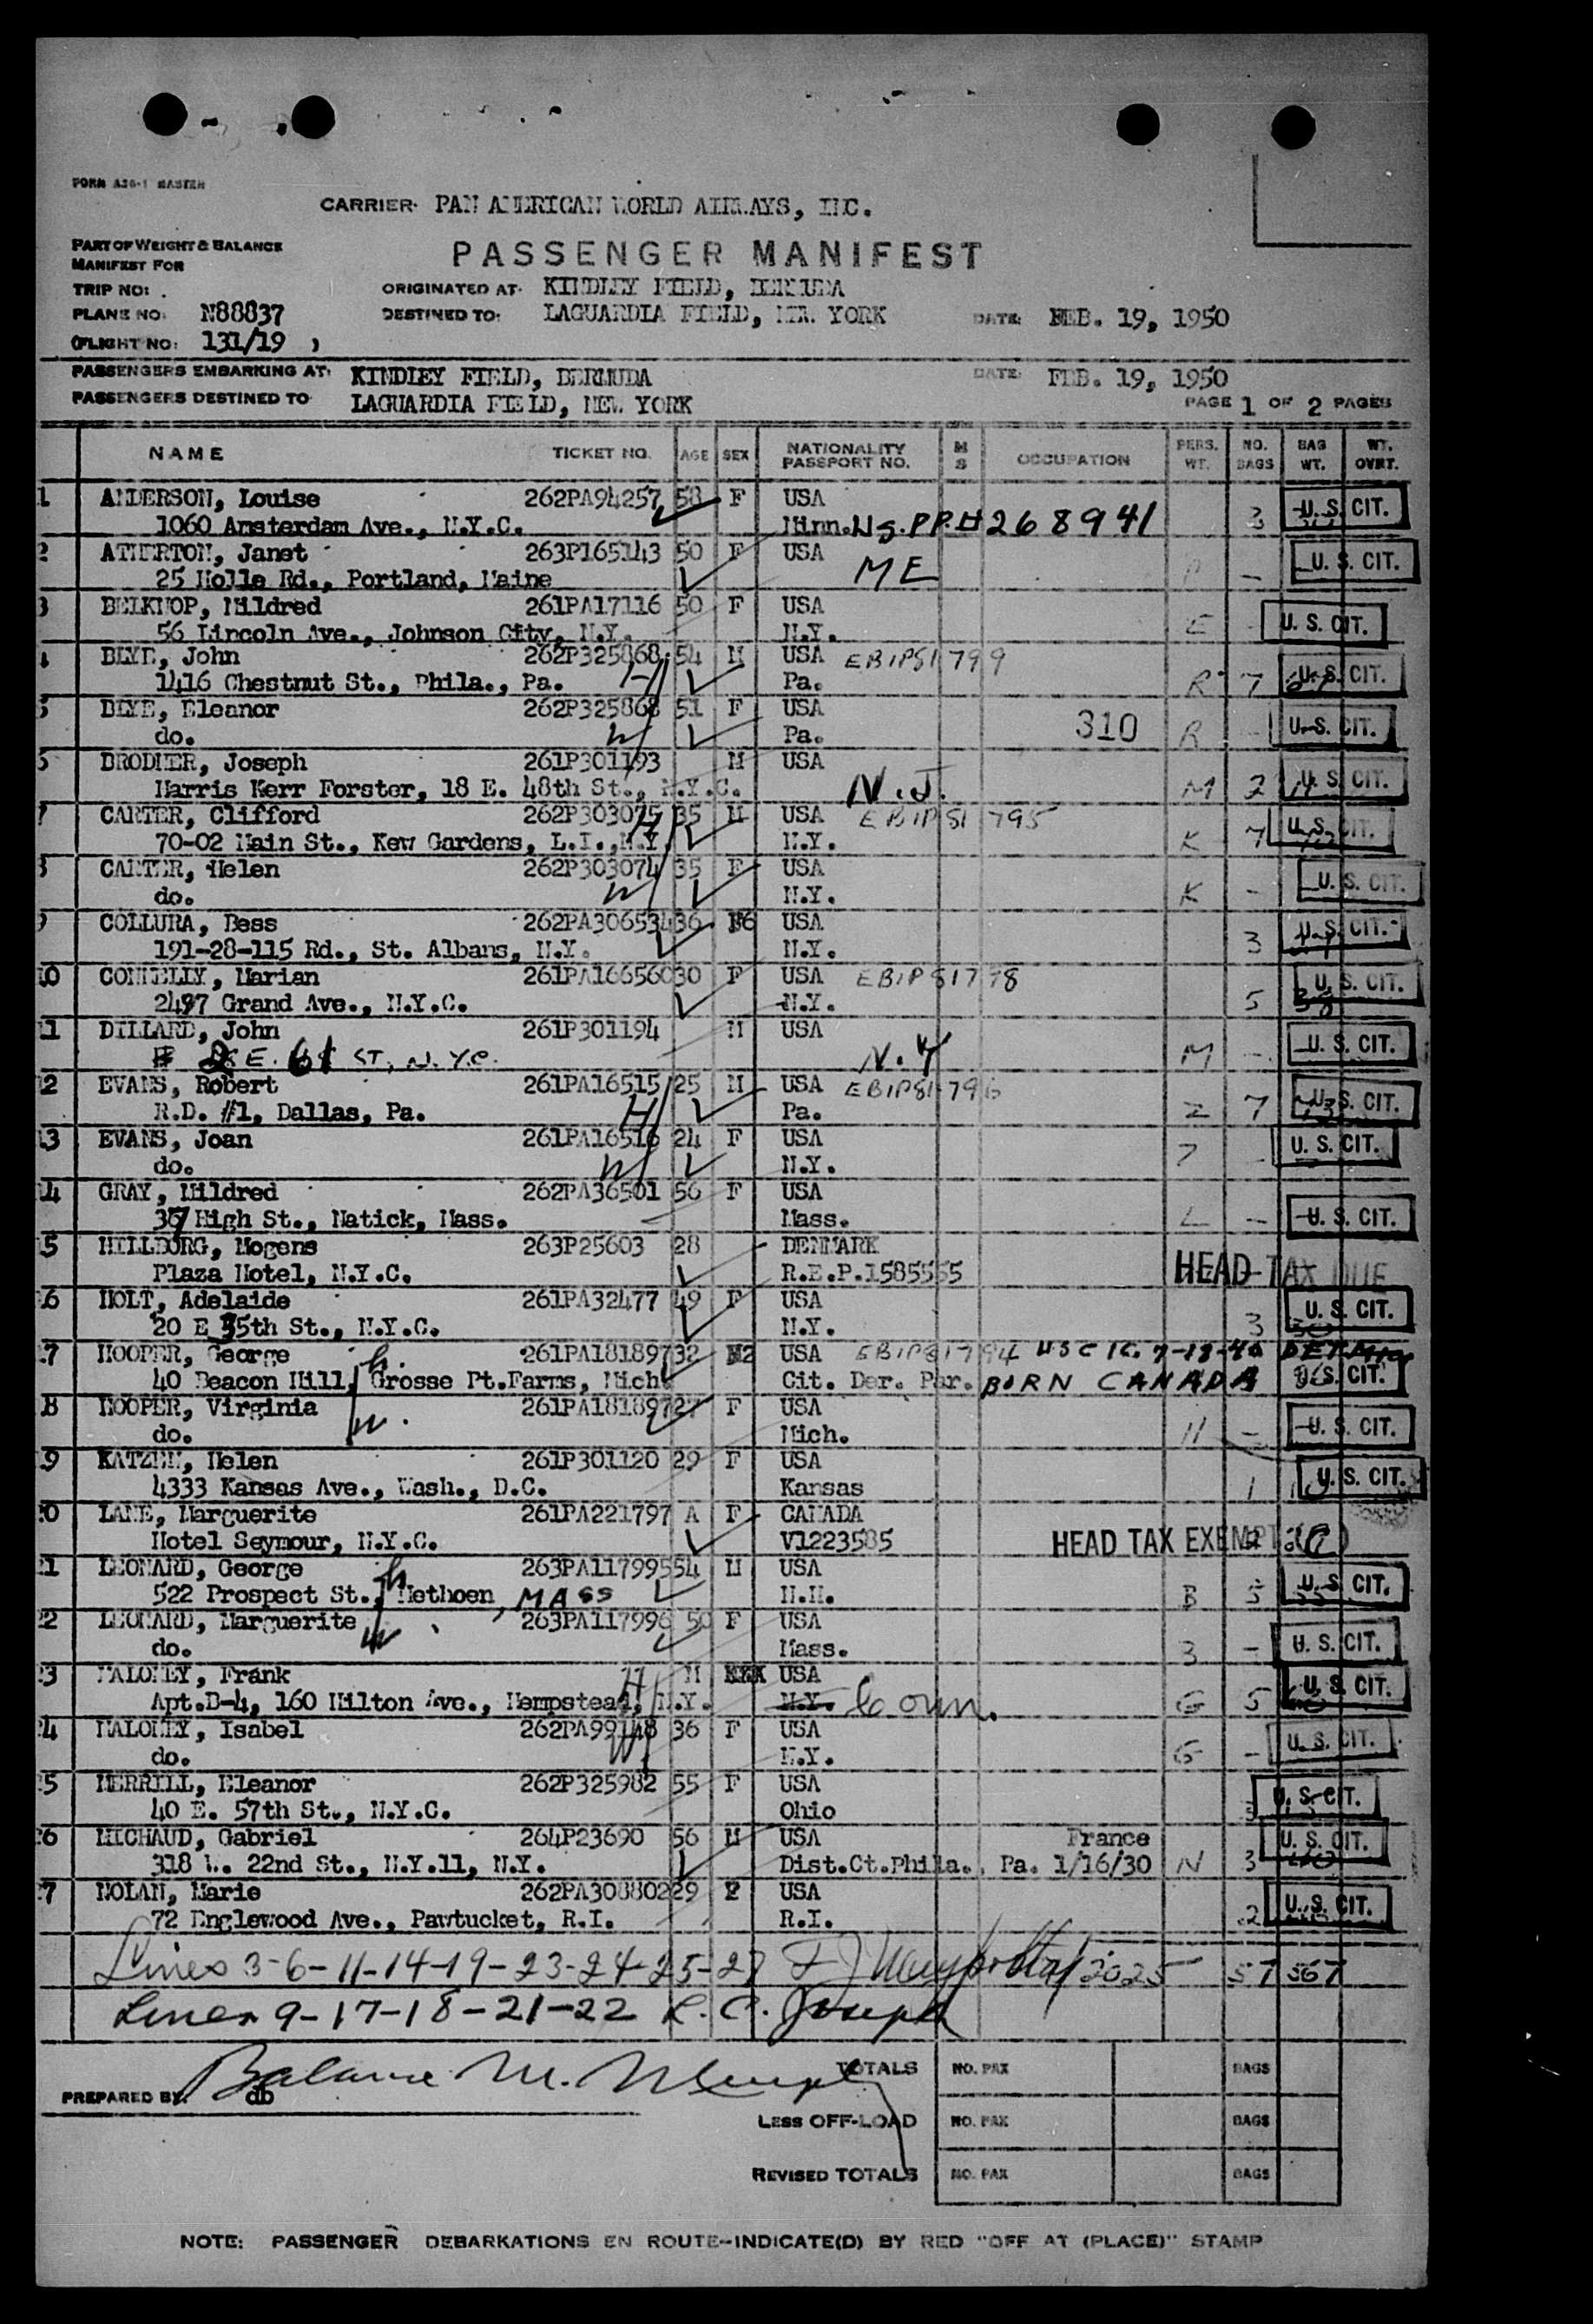 FORM A26-1 MASTER
CARRIER: PAN AMERICAN WORLD AIRWAYS, INC.
PART OF WEIGHT & BALANCE
MANIFEST FOR
PASSENGER MANIFEST
TRIP NO:
ORIGINATED AT: KINDLEY FIELD, BERMUDA
PLANE NO: N88837 DESTINED TO: LAGUARDIA FIELD, NEW YORK DATE: FEB. 19, 1950
(FLIGHT NO: 131/19 )
PASSENGERS EMBARKING AT: KINDLEY FIELD, BERMUDA DATE: FEB. 19, 1950
PASSENGERS DESTINED TO LAGUARDIA FIELD, NEW YORK PAGE 1 OF 2 PAGES
NAME TICKET NO. AGE SEX NATIONALITY PASSPORT NO. M S OCCUPATION PERS. WT. NO. BAGS BAG WT. WT. OVRT.
1 ANDERSON, Louise 262PA94257 58 F USA 3 U.S. CIT.
1060 Amsterdam Ave., N.Y.C. Minn. U.S. PP.# 268941
2 ATHERTON, Janet 263P165143 50 F USA ME – U.S. CIT.
25 Holle Rd., Portland, Maine
3 BELKNOP, Mildred 261PA17116 50 F USA E U.S. CIT.
56 Lincoln Ave., Johnson City, N.Y. N.Y.
4 BLYE, John 262P325868 54 M USA EBIPS1799
1416 Chestnut St., Phila., Pa. H Pa. R 7 U.S. CIT.
5 BLYE, Eleanor 262P325868 51 F USA 310 R – U.S. CIT.
do. W Pa.
6 BRODIER, Joseph 261P301193 M USA
Harris Kerr Forster, 18 E. 48th St., N.Y.C. N.J. M 2 U.S. CIT.
7 CARTER, Clifford 262P303075 35 M USA EBIPS1795
70-02 Main St., Kew Gardens, L.I., N.Y. H N.Y. K 7 U.S. CIT.
8 CARTER, Helen 262P303074 35 F USA
do. W N.Y. K – U.S. CIT.
9 COLLURA, Bess 262PA306534 36 USA
191-28-115 Rd., St. Albans, N.Y. N.Y. 3 U.S. CIT.
10 CONNELLY, Marian 261PA166560 30 F USA EBIPS1798
2497 Grand Ave., N.Y.C. N.Y. 5 38 U.S. CIT.
11 DILLARD, John 261P301194 M USA
2 E. 61 ST, N.Y.C. N.Y M – U.S. CIT.
12 EVANS, Robert 261PA16515 25 M USA EBIPS1796
R.D. #1, Dallas, Pa. H Pa. Z 7 U.S. CIT.
13 EVANS, Joan 261PA16516 24 F USA
do. W N.Y. Z – U.S. CIT.
14 GRAY, Mildred 262PA36501 56 F USA
37 High St., Natick, Mass. Mass. L – U.S. CIT.
15 HILLBORG, Mogens 263P25603 28 DENMARK
Plaza Hotel, N.Y.C. R.E.P.1585555 HEAD TAX DUE
16 HOLT, Adelaide 261PA32477 49 F USA
20 E 35th St., N.Y.C. N.Y. 3 U.S. CIT.
17 HOOPER, George h. 261PA181897 32 USA EBIPS1794
40 Beacon Hill, Grosse Pt.Farms, Mich. Cit. Der. Par. BORN CANADA U.S. CIT.
18 HOOPER, Virginia w. 261PA181897 27 F USA
do. Mich. H – U.S. CIT.
19 KATZEN, Helen 261P301120 29 F USA
4333 Kansas Ave., Wash., D.C. Kansas 1 U.S. CIT.
20 LANE, Marguerite 261PA221797 A F CANADA
Hotel Seymour, N.Y.C. V1223585 HEAD TAX EXEMPT
21 LEONARD, George h 263PA117995 54 M USA
522 Prospect St., Methoen, MASS N.H. B 5 U.S. CIT.
22 LEONARD, Marguerite w 263PA117996 50 F USA
do. Mass. B – U.S. CIT.
23 MALONEY, Frank H M USA
Apt.D-4, 160 Hilton Ave., Hempstead, N.Y. N.Y. Conn. G 5 U.S. CIT.
24 MALONEY, Isabel 262PA99148 36 F USA
do. W N.Y. G – U.S. CIT.
25 MERRILL, Eleanor 262P325982 55 F USA
40 E. 57th St., N.Y.C. Ohio 3 U.S. CIT.
26 MICHAUD, Gabriel 264P23690 56 M USA France
318 W. 22nd St., N.Y.11, N.Y. Dist.Ct.Phila., Pa. 1/16/30 N 3 U.S. CIT.
27 NOLAN, Marie 262PA308802 29 F USA
72 Englewood Ave., Pawtucket, R.I. R.I. 2 U.S. CIT.
Lines 3-6-11-14-19-23-24-25-27 2025 57 567
Lines 9-17-18-21-22 R. C. Joseph
PREPARED BY: db
TOTALS NO. PAX BAGS
LESS OFF-LOAD NO. PAX BAGS
REVISED TOTALS NO. PAX BAGS
NOTE: PASSENGER DEBARKATIONS EN ROUTE--INDICATE(D) BY RED "OFF AT (PLACE)" STAMP